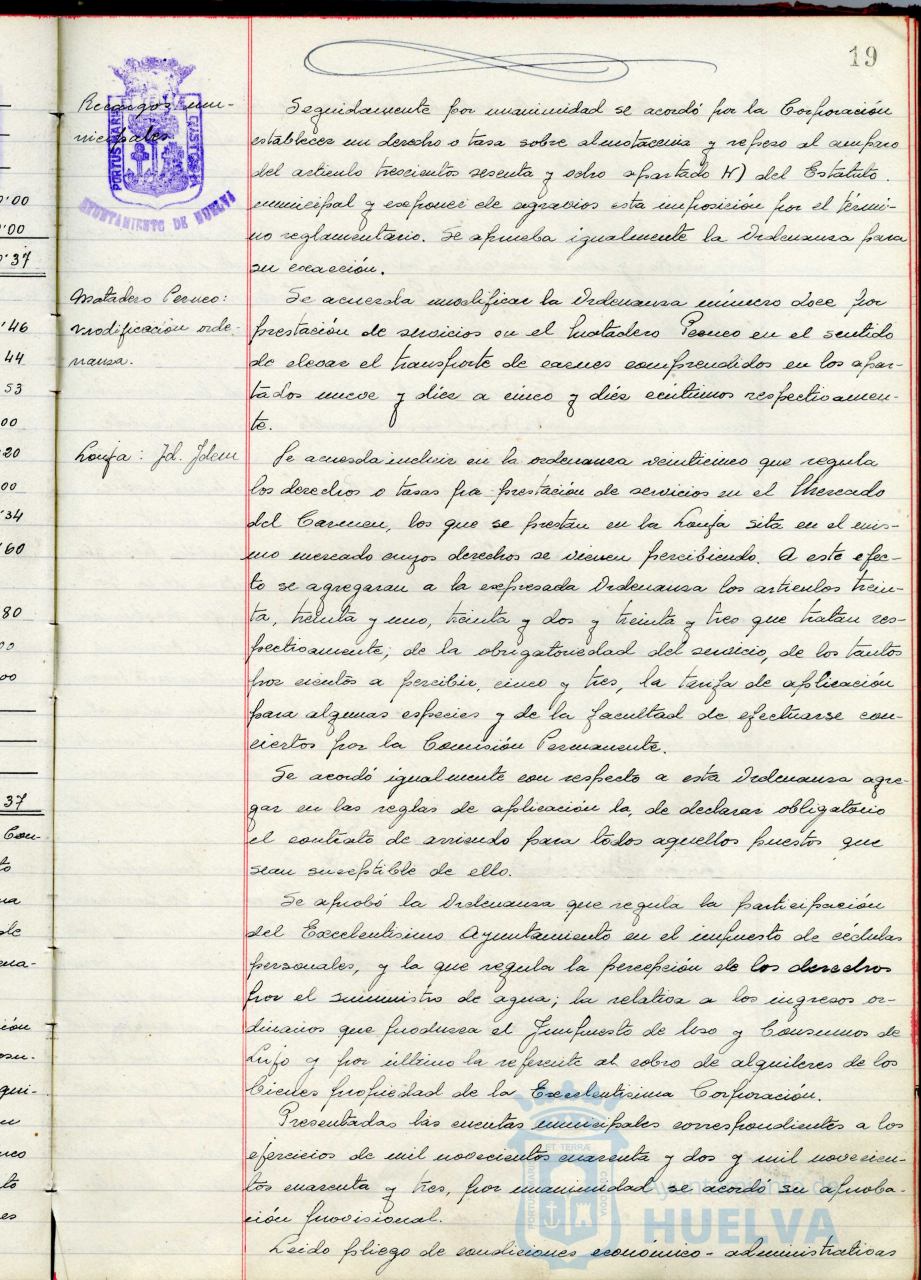 19
Recargos mu-
nicipales
PORTUS MARIS ET TERRÆ CUSTODIA
AYUNTAMIENTO DE HUELVA
Seguidamente por unanimidad se acordó por la Corporación
establecer un derecho o tasa sobre almotacenia y repeso al amparo
del articulo trescientos sesenta y ocho apartado H) del Estatuto
municipal y exponer de agravios esta imposición por el térmi-
no reglamentario. Se aprueba igualmente la Ordenanza para
su exacción.
Matadero Perneo:
modificación orde-
nanza.
Se acuerda modificar la Ordenanza número doce por
prestación de servicios en el Matadero Perneo en el sentido
de elevar el transporte de carnes comprendidos en los apar-
tados nueve y diez a cinco y diez céntimos respectivamen-
te.
Lonja: Id. Idem
Se acuerda incluir en la ordenanza veinticinco que regula
los derechos o tasas por prestación de servicios en el Mercado
del Carmen, los que se prestan en la Lonja sita en el mis-
mo mercado cuyos derechos se vienen percibiendo. A este efec-
to se agregaran a la expresada Ordenanza los articulos trein-
ta, treinta y uno, treinta y dos y treinta y tres que tratan res-
pectivamente; de la obrigatoriedad del servicio, de los tantos
por cientos a percibir, cinco y tres, la tarifa de aplicación
para algunas especies y de la facultad de efectuarse con-
ciertos por la Comisión Permanente.
Se acordó igualmente con respecto a esta Ordenanza agre-
gar en las reglas de aplicación la, de declarar obligatorio
el contrato de arriendo para todos aquellos puestos que
sean suceptible de ello.
Se aprobó la Ordenanza que regula la participación
del Excelentisimo Ayuntamiento en el impuesto de cédulas
personales, y la que regula la percepción de los derechos
por el suministro de agua; la relativa a los ingresos or-
dinarios que produzca el Impuesto de Uso y Consumos de
Lujo y por último la referente al cobro de alquileres de los
bienes propiedad de la Excelentisima Corporación.
Presentadas las cuentas municipales correspondientes a los
ejercicios de mil novecientos cuarenta y dos y mil novecien-
tos cuarenta y tres, por unanimidad se acordó su aproba-
ción provisional.
Leido pliego de condiciones económico-administrativas
Ayuntamiento de
HUELVA
0'00
0'00
'37
'46
44
53
00
20
00
'34
'60
80
00
00
37
Con-
to
na
de
ena-
ión
osu-
qui-
nco
to
es